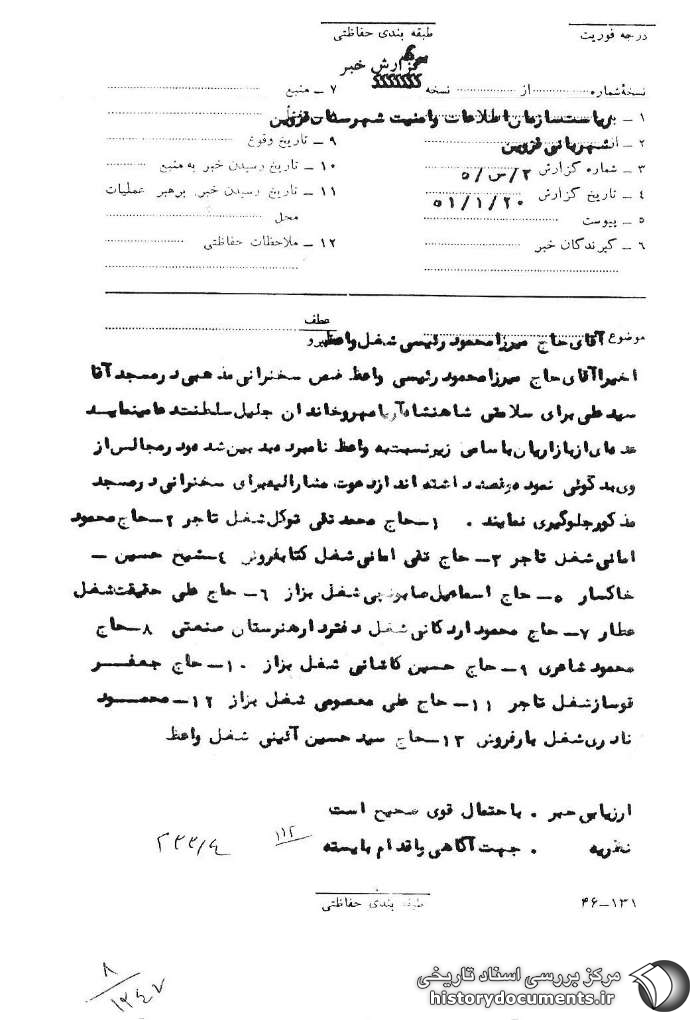 درجه فوریت
طبقه بندی حفاظتی
گزارش خبر
نسخهٔ شماره ........ از ........ نسخه
۷ ــ منبع
۱ ــ ریاست سازمان اطلاعات و امنیت شهرستان قزوین
۲ ــ شهربانی قزوین
۹ ــ تاریخ وقوع
۳ ــ شماره گزارش ۵/س/۲
۱۰ ــ تاریخ رسیدن خبر به منبع
۴ ــ تاریخ گزارش ۵۱/۱/۲۰
۱۱ ــ تاریخ رسیدن خبر برهبر عملیات
محل
۵ ــ پیوست
۶ ــ گیرندگان خبر
۱۲ ــ ملاحظات حفاظتی
عطف
پیرو
موضوع آقای حاج میرزا محمود رئیسی شغل واعظ
اخیرا آقای حاج میرزا محمود رئیسی واعظ ضمن سخنرانی مذهبی در مسجد آقا
سید علی برای سلامتی شاهنشاه آریامهر و خاندان جلیل سلطنت دعا مینماید
عده ای از بازاریان باسامی زیر نسبت به واعظ نامبرده بد بین شده و در مجالس از
وی بد گوئی نموده و قصد داشته اند از دعوت مشارالیه برای سخنرانی در مسجد
مذکور جلوگیری نمایند . ۱ــ حاج محمد تقی توکل شغل تاجر ۲ــ حاج محمود
امانی شغل تاجر ۳ــ حاج تقی امانی شغل کتابفروش ۴ــ شیخ حسین ــ
خاکسار ۵ــ حاج اسماعیل صابونچی شغل بزاز ۶ــ حاج علی حقیقت شغل
عطار ۷ــ حاج محمود اردکانی شغل دفتردار هنرستان صنعتی ۸ــ حاج
محمود شاعری ۹ــ حاج حسین کاشانی شغل بزاز ۱۰ــ حاج جعفر
قوساز شغل تاجر ۱۱ــ حاج علی معصومی شغل بزاز ۱۲ــ محمود
نادری شغل بارفروش ۱۳ــ حاج سید حسین آئینی شغل واعظ
ارزیابی خبر . باحتمال قوی صحیح است
نظریه . جهت آگاهی و اقدام بایسته
۱۱۲
۲۳۳/۴
طبقه بندی حفاظتی
۴۶ــ۱۳۱
۸
۱۳۴۷
مرکز بررسی اسناد تاریخی
historydocuments.ir